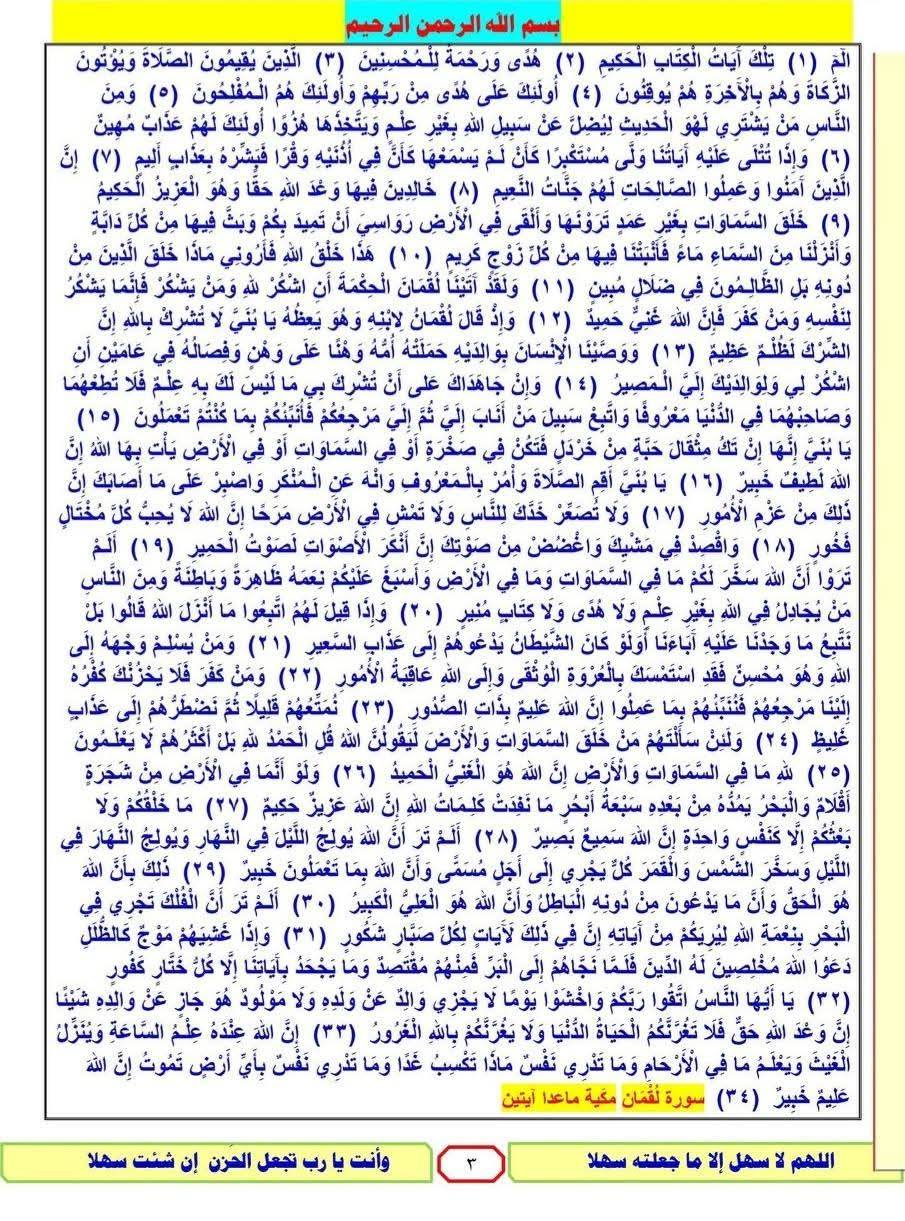 بسم الله الرحمن الرحيم
الٓمٓ (١) تِلْكَ آيَاتُ الْكِتَابِ الْحَكِيمِ (٢) هُدًى وَرَحْمَةً لِلْمُحْسِنِينَ (٣) الَّذِينَ يُقِيمُونَ الصَّلَاةَ وَيُؤْتُونَ
الزَّكَاةَ وَهُمْ بِالْآخِرَةِ هُمْ يُوقِنُونَ (٤) أُولَئِكَ عَلَى هُدًى مِنْ رَبِّهِمْ وَأُولَئِكَ هُمُ الْمُفْلِحُونَ (٥) وَمِنَ
النَّاسِ مَنْ يَشْتَرِي لَهْوَ الْحَدِيثِ لِيُضِلَّ عَنْ سَبِيلِ اللهِ بِغَيْرِ عِلْمٍ وَيَتَّخِذَهَا هُزُوًا أُولَئِكَ لَهُمْ عَذَابٌ مُهِينٌ
(٦) وَإِذَا تُتْلَى عَلَيْهِ آيَاتُنَا وَلَّى مُسْتَكْبِرًا كَأَنْ لَمْ يَسْمَعْهَا كَأَنَّ فِي أُذُنَيْهِ وَقْرًا فَبَشِّرْهُ بِعَذَابٍ أَلِيمٍ (٧) إِنَّ
الَّذِينَ آمَنُوا وَعَمِلُوا الصَّالِحَاتِ لَهُمْ جَنَّاتُ النَّعِيمِ (٨) خَالِدِينَ فِيهَا وَعْدَ اللهِ حَقًّا وَهُوَ الْعَزِيزُ الْحَكِيمُ
(٩) خَلَقَ السَّمَاوَاتِ بِغَيْرِ عَمَدٍ تَرَوْنَهَا وَأَلْقَى فِي الْأَرْضِ رَوَاسِيَ أَنْ تَمِيدَ بِكُمْ وَبَثَّ فِيهَا مِنْ كُلِّ دَابَّةٍ
وَأَنْزَلْنَا مِنَ السَّمَاءِ مَاءً فَأَنْبَتْنَا فِيهَا مِنْ كُلِّ زَوْجٍ كَرِيمٍ (١٠) هَذَا خَلْقُ اللهِ فَأَرُونِي مَاذَا خَلَقَ الَّذِينَ مِنْ
دُونِهِ بَلِ الظَّالِمُونَ فِي ضَلَالٍ مُبِينٍ (١١) وَلَقَدْ آتَيْنَا لُقْمَانَ الْحِكْمَةَ أَنِ اشْكُرْ لِلهِ وَمَنْ يَشْكُرْ فَإِنَّمَا يَشْكُرُ
لِنَفْسِهِ وَمَنْ كَفَرَ فَإِنَّ اللهَ غَنِيٌّ حَمِيدٌ (١٢) وَإِذْ قَالَ لُقْمَانُ لِابْنِهِ وَهُوَ يَعِظُهُ يَا بُنَيَّ لَا تُشْرِكْ بِاللهِ إِنَّ
الشِّرْكَ لَظُلْمٌ عَظِيمٌ (١٣) وَوَصَّيْنَا الْإِنْسَانَ بِوَالِدَيْهِ حَمَلَتْهُ أُمُّهُ وَهْنًا عَلَى وَهْنٍ وَفِصَالُهُ فِي عَامَيْنِ أَنِ
اشْكُرْ لِي وَلِوَالِدَيْكَ إِلَيَّ الْمَصِيرُ (١٤) وَإِنْ جَاهَدَاكَ عَلى أَنْ تُشْرِكَ بِي مَا لَيْسَ لَكَ بِهِ عِلْمٌ فَلَا تُطِعْهُمَا
وَصَاحِبْهُمَا فِي الدُّنْيَا مَعْرُوفًا وَاتَّبِعْ سَبِيلَ مَنْ أَنَابَ إِلَيَّ ثُمَّ إِلَيَّ مَرْجِعُكُمْ فَأُنَبِّئُكُمْ بِمَا كُنْتُمْ تَعْمَلُونَ (١٥)
يَا بُنَيَّ إِنَّهَا إِنْ تَكُ مِثْقَالَ حَبَّةٍ مِنْ خَرْدَلٍ فَتَكُنْ فِي صَخْرَةٍ أَوْ فِي السَّمَاوَاتِ أَوْ فِي الْأَرْضِ يَأْتِ بِهَا اللهُ إِنَّ
اللهَ لَطِيفٌ خَبِيرٌ (١٦) يَا بُنَيَّ أَقِمِ الصَّلَاةَ وَأْمُرْ بِالْمَعْرُوفِ وَانْهَ عَنِ الْمُنْكَرِ وَاصْبِرْ عَلَى مَا أَصَابَكَ إِنَّ
ذَلِكَ مِنْ عَزْمِ الْأُمُورِ (١٧) وَلَا تُصَعِّرْ خَدَّكَ لِلنَّاسِ وَلَا تَمْشِ فِي الْأَرْضِ مَرَحًا إِنَّ اللهَ لَا يُحِبُّ كُلَّ مُخْتَالٍ
فَخُورٍ (١٨) وَاقْصِدْ فِي مَشْيِكَ وَاغْضُضْ مِنْ صَوْتِكَ إِنَّ أَنْكَرَ الْأَصْوَاتِ لَصَوْتُ الْحَمِيرِ (١٩) أَلَمْ
تَرَوْا أَنَّ اللهَ سَخَّرَ لَكُمْ مَا فِي السَّمَاوَاتِ وَمَا فِي الْأَرْضِ وَأَسْبَغَ عَلَيْكُمْ نِعَمَهُ ظَاهِرَةً وَبَاطِنَةً وَمِنَ النَّاسِ
مَنْ يُجَادِلُ فِي اللهِ بِغَيْرِ عِلْمٍ وَلَا هُدًى وَلَا كِتَابٍ مُنِيرٍ (٢٠) وَإِذَا قِيلَ لَهُمُ اتَّبِعُوا مَا أَنْزَلَ اللهُ قَالُوا بَلْ
نَتَّبِعُ مَا وَجَدْنَا عَلَيْهِ آبَاءَنَا أَوَلَوْ كَانَ الشَّيْطَانُ يَدْعُوهُمْ إِلَى عَذَابِ السَّعِيرِ (٢١) وَمَنْ يُسْلِمْ وَجْهَهُ إِلَى
اللهِ وَهُوَ مُحْسِنٌ فَقَدِ اسْتَمْسَكَ بِالْعُرْوَةِ الْوُثْقَى وَإِلَى اللهِ عَاقِبَةُ الْأُمُورِ (٢٢) وَمَنْ كَفَرَ فَلَا يَحْزُنْكَ كُفْرُهُ
إِلَيْنَا مَرْجِعُهُمْ فَنُنَبِّئُهُمْ بِمَا عَمِلُوا إِنَّ اللهَ عَلِيمٌ بِذَاتِ الصُّدُورِ (٢٣) نُمَتِّعُهُمْ قَلِيلًا ثُمَّ نَضْطَرُّهُمْ إِلَى عَذَابٍ
غَلِيظٍ (٢٤) وَلَئِنْ سَأَلْتَهُمْ مَنْ خَلَقَ السَّمَاوَاتِ وَالْأَرْضَ لَيَقُولُنَّ اللهُ قُلِ الْحَمْدُ لِلهِ بَلْ أَكْثَرُهُمْ لَا يَعْلَمُونَ
(٢٥) لِلهِ مَا فِي السَّمَاوَاتِ وَالْأَرْضِ إِنَّ اللهَ هُوَ الْغَنِيُّ الْحَمِيدُ (٢٦) وَلَوْ أَنَّمَا فِي الْأَرْضِ مِنْ شَجَرَةٍ
أَقْلَامٌ وَالْبَحْرُ يَمُدُّهُ مِنْ بَعْدِهِ سَبْعَةُ أَبْحُرٍ مَا نَفِدَتْ كَلِمَاتُ اللهِ إِنَّ اللهَ عَزِيزٌ حَكِيمٌ (٢٧) مَا خَلْقُكُمْ وَلَا
بَعْثُكُمْ إِلَّا كَنَفْسٍ وَاحِدَةٍ إِنَّ اللهَ سَمِيعٌ بَصِيرٌ (٢٨) أَلَمْ تَرَ أَنَّ اللهَ يُولِجُ اللَّيْلَ فِي النَّهَارِ وَيُولِجُ النَّهَارَ فِي
اللَّيْلِ وَسَخَّرَ الشَّمْسَ وَالْقَمَرَ كُلٌّ يَجْرِي إِلَى أَجَلٍ مُسَمًّى وَأَنَّ اللهَ بِمَا تَعْمَلُونَ خَبِيرٌ (٢٩) ذَلِكَ بِأَنَّ اللهَ
هُوَ الْحَقُّ وَأَنَّ مَا يَدْعُونَ مِنْ دُونِهِ الْبَاطِلُ وَأَنَّ اللهَ هُوَ الْعَلِيُّ الْكَبِيرُ (٣٠) أَلَمْ تَرَ أَنَّ الْفُلْكَ تَجْرِي فِي
الْبَحْرِ بِنِعْمَةِ اللهِ لِيُرِيَكُمْ مِنْ آيَاتِهِ إِنَّ فِي ذَلِكَ لَآيَاتٍ لِكُلِّ صَبَّارٍ شَكُورٍ (٣١) وَإِذَا غَشِيَهُمْ مَوْجٌ كَالظُّلَلِ
دَعَوُا اللهَ مُخْلِصِينَ لَهُ الدِّينَ فَلَمَّا نَجَّاهُمْ إِلَى الْبَرِّ فَمِنْهُمْ مُقْتَصِدٌ وَمَا يَجْحَدُ بِآيَاتِنَا إِلَّا كُلُّ خَتَّارٍ كَفُورٍ
(٣٢) يَا أَيُّهَا النَّاسُ اتَّقُوا رَبَّكُمْ وَاخْشَوْا يَوْمًا لَا يَجْزِي وَالِدٌ عَنْ وَلَدِهِ وَلَا مَوْلُودٌ هُوَ جَازٍ عَنْ وَالِدِهِ شَيْئًا
إِنَّ وَعْدَ اللهِ حَقٌّ فَلَا تَغُرَّنَّكُمُ الْحَيَاةُ الدُّنْيَا وَلَا يَغُرَّنَّكُمْ بِاللهِ الْغَرُورُ (٣٣) إِنَّ اللهَ عِنْدَهُ عِلْمُ السَّاعَةِ وَيُنَزِّلُ
الْغَيْثَ وَيَعْلَمُ مَا فِي الْأَرْحَامِ وَمَا تَدْرِي نَفْسٌ مَاذَا تَكْسِبُ غَدًا وَمَا تَدْرِي نَفْسٌ بِأَيِّ أَرْضٍ تَمُوتُ إِنَّ اللهَ
عَلِيمٌ خَبِيرٌ (٣٤) سورة لُقْمَان مكية ماعدا آيتين
اللهم لا سهل إلا ما جعلته سهلا ٣ وأنت يا رب تجعل الحَزن إن شئت سهلا